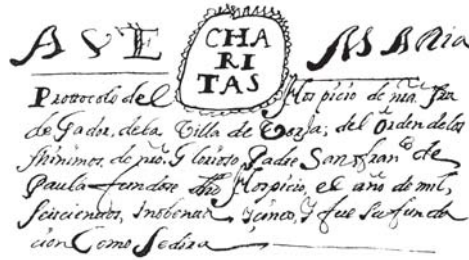 AVE MARia
CHA
RI
TAS
Prottocolo del Hospicio de nra. Sra
de Gador, de la Villa de Borja; del Orden de los
Minimos, de nro. Glorioso Padre San fran.co de
Paula fundose dho Hospicio, el año de mil,
seiscientos, I nobenta, Y cinco, Y fue su funda
cion Como se dira